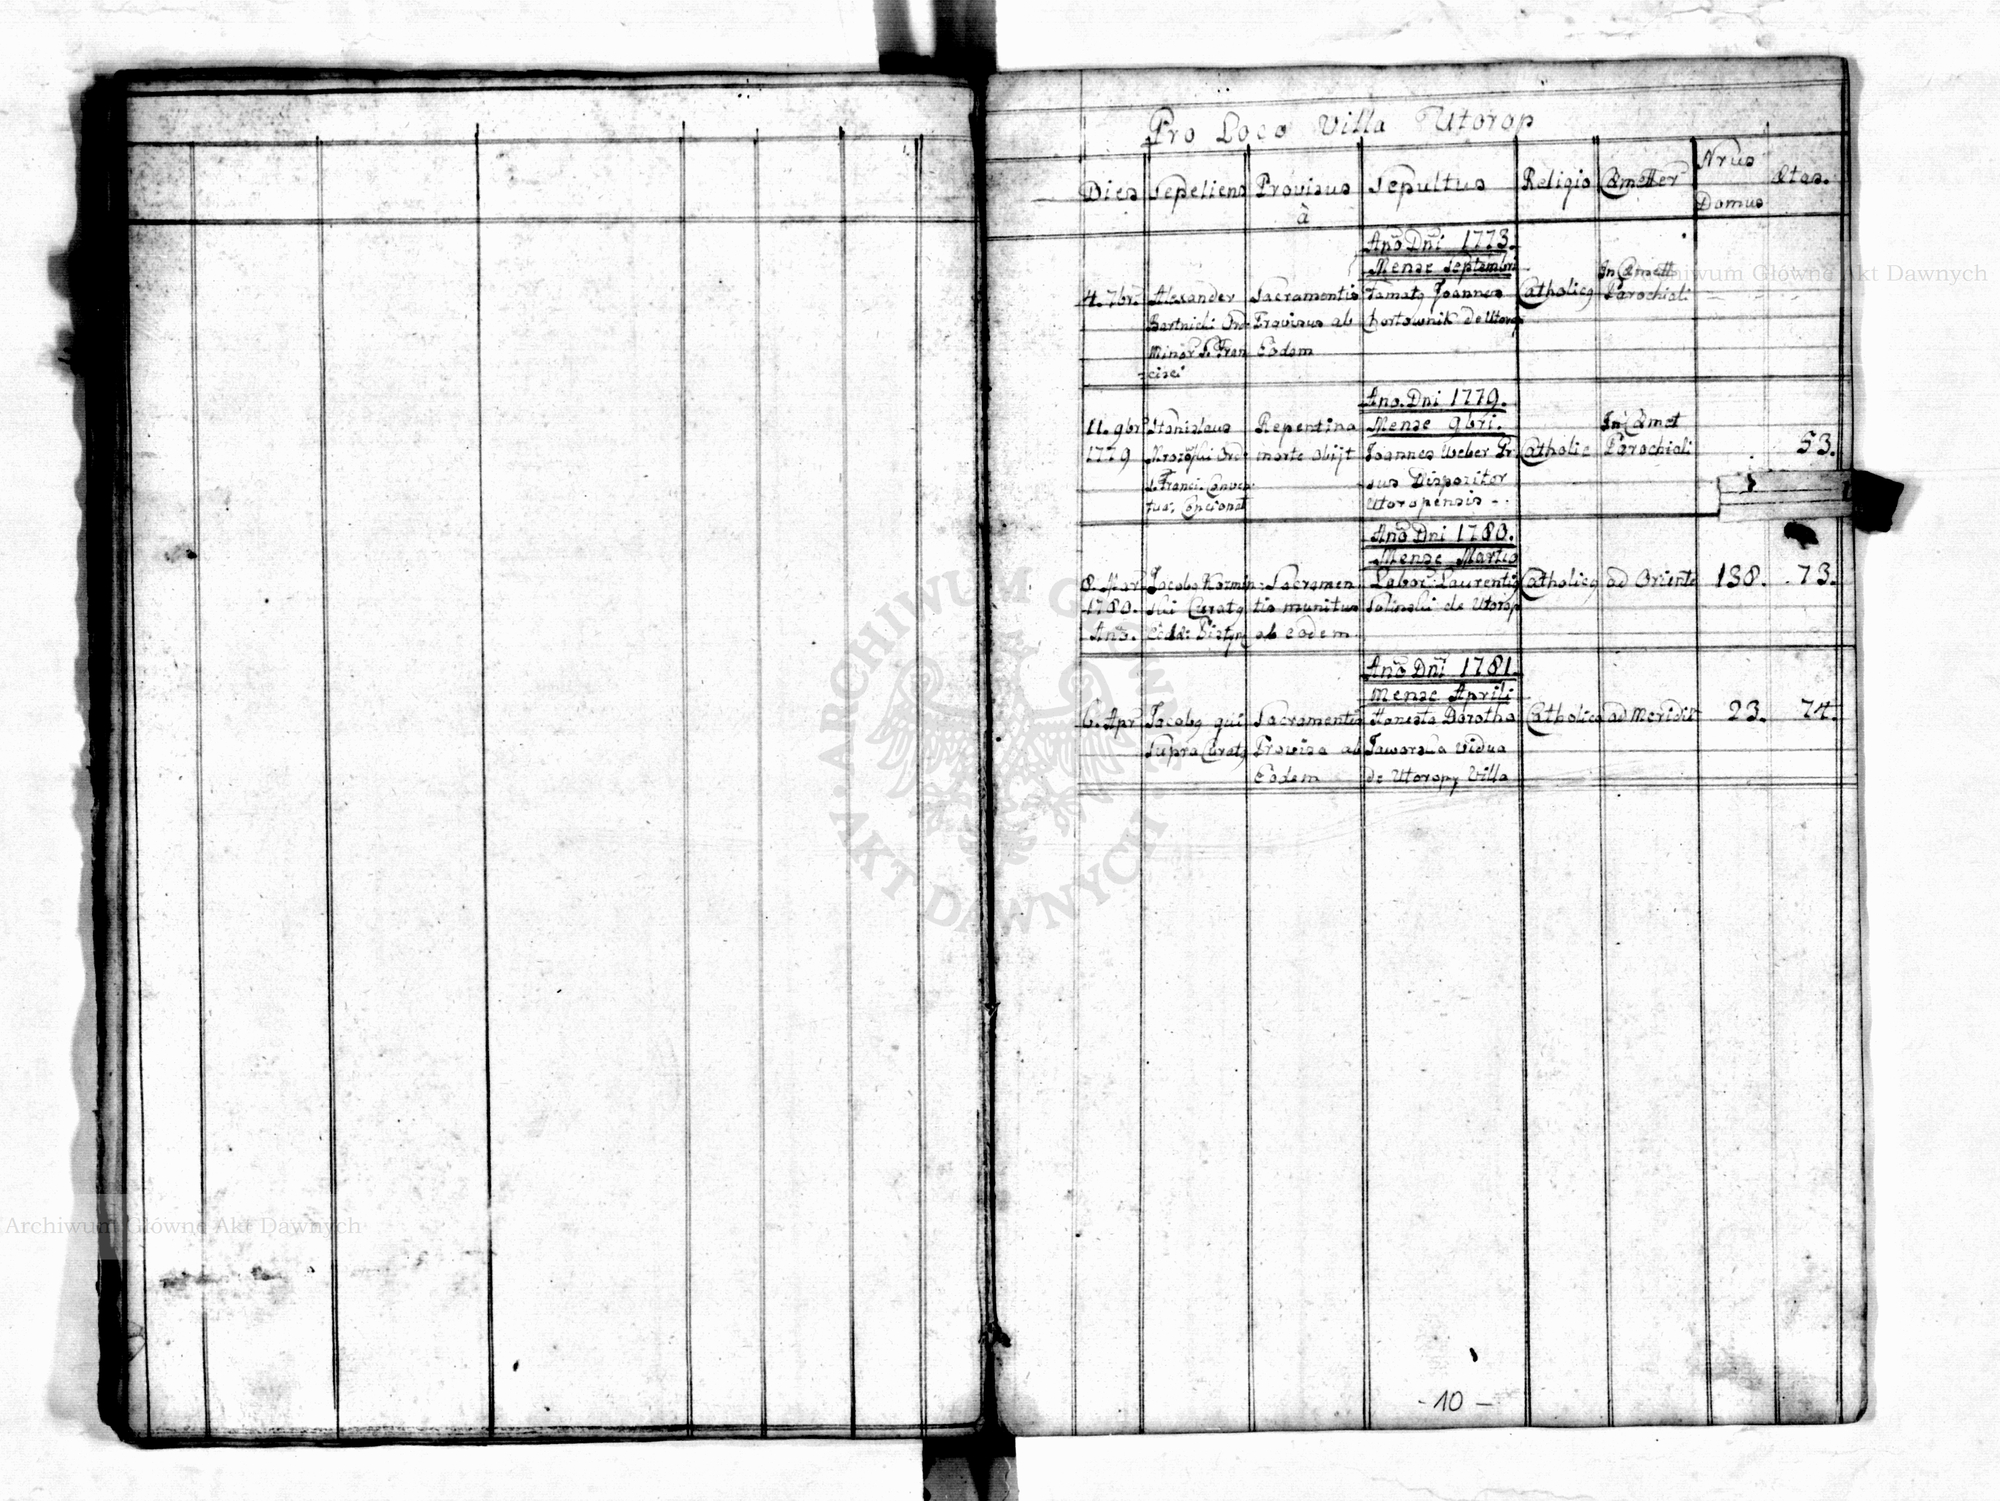 Pro Loco Villa Utorop
Dies Sepeliens Provisus à Sepultus Religio Cæmetter Nrus Domus Ætas.
Ano Dni 1773.
Mense Septembri
4. 7br. Alexander Sacramentis Famatg Joannes Catholicg In Cæmett
Bartnicki Ord Provisus ab hortownik de Utorop Parochiali
Minor S. Fran Eodem
cisci
Ano. Dni 1779.
Mense 9bri.
11. 9br Stanislaus Repentina In Cæmet
1779 Ord morte obijt Joannes Weber Pr Catholic Parochiali 53.
S. Franci. Conven sus Dispozitor
tua; Concionat Utoropensis
Ano Dni 1780.
Mense Martio
8. Mar Jacobg Kozmin: Sacramen Labor: Laurentig Catholicg ad Oriente 138. 73.
1780. ski Curatg tis munitus Solinski de Utorop
Ano. Eccle: Pistyn ab eodem
Ano Dni 1781.
Mense Aprili
6. Apr Jacobg qui Sacramentis Honesta Dorotha Catholica ad Meridie 23. 74.
Supra Curatg Provisa ab Jaworska Vidua
Eodem de Utoropy Villa
-10-
ARCHIWUM GŁÓWNE AKT DAWNYCH
Archiwum Główne Akt Dawnych
Archiwum Główne Akt Dawnych